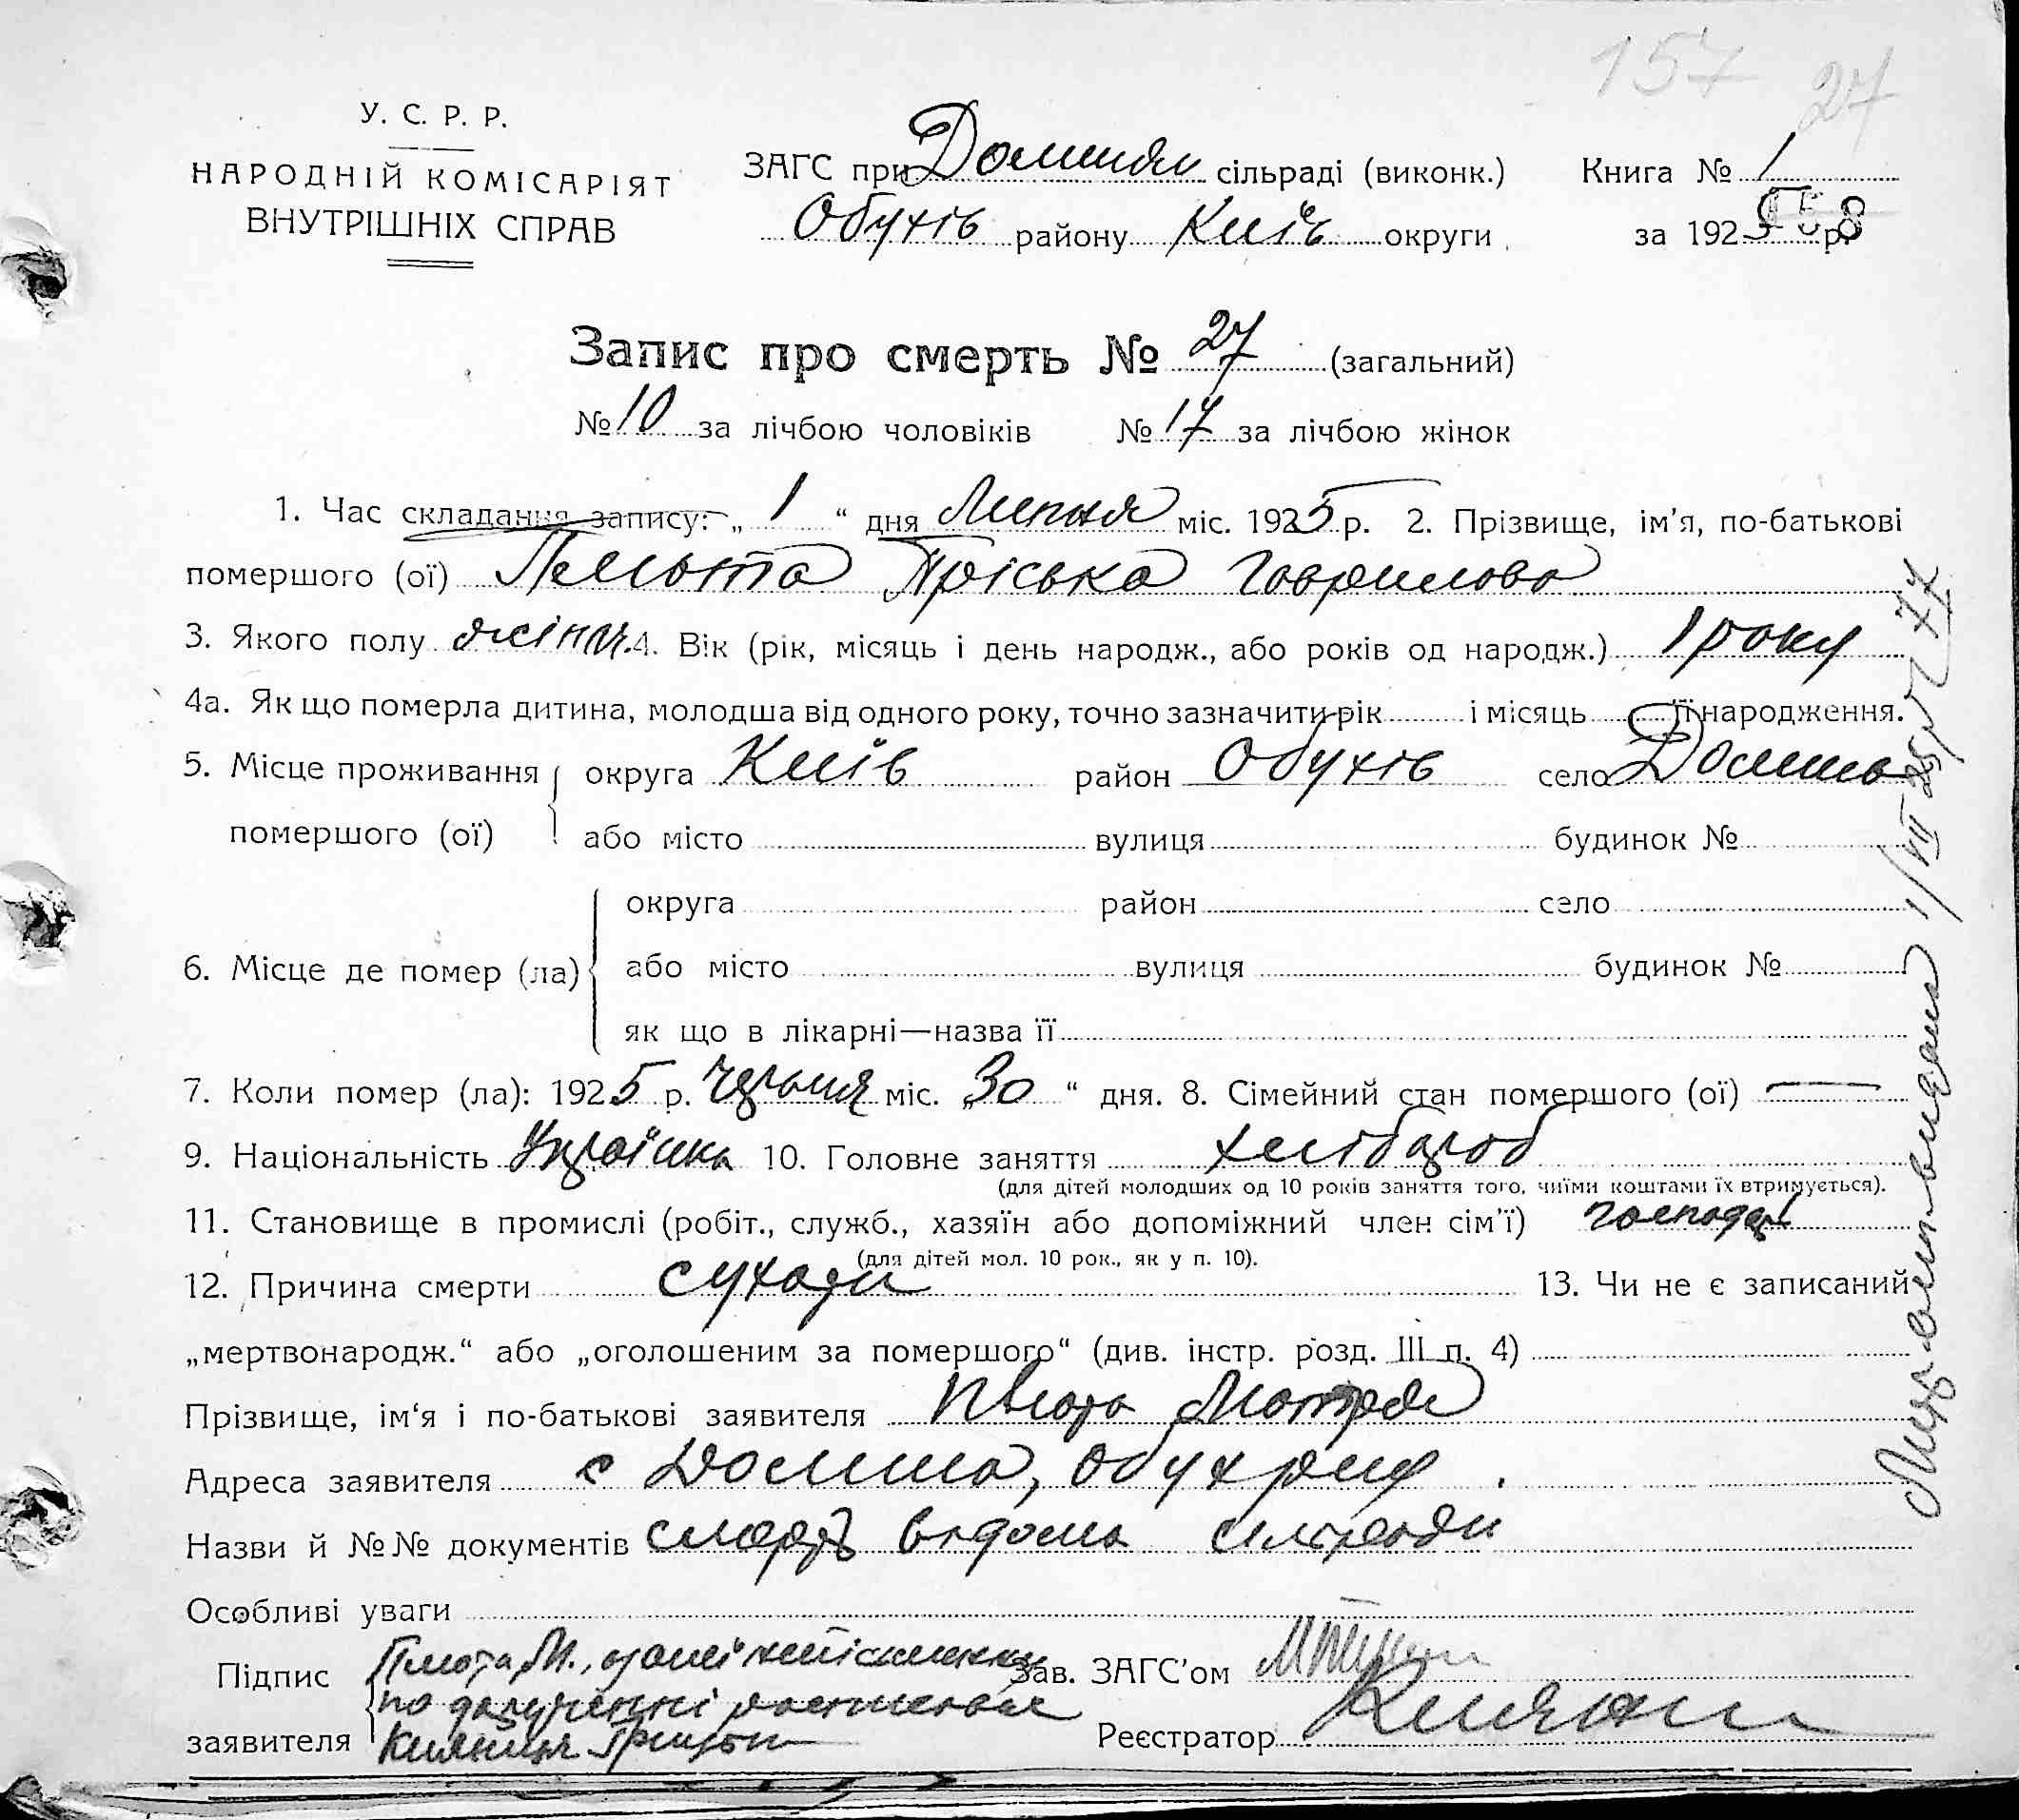 157 27
У. С. Р. Р.
НАРОДНІЙ КОМІСАРІЯТ
ВНУТРІШНІХ СПРАВ
ЗАГС при Долинян сільраді (виконк.) Книга № 1
Обухів району Київ округи за 1925 р.
Запис про смерть № 27 (загальний)
№ 10 за лічбою чоловіків № 17 за лічбою жінок
1. Час складання запису: „ 1 “ дня Липня міс. 1925 р. 2. Прізвище, ім’я, по-батькові
помершого (ої) Пльота Пріська Гаврилова
3. Якого полу жіноч. 4. Вік (рік, місяць і день народж., або років од народж.) 1 року
4а. Як що померла дитина, молодша від одного року, точно зазначити рік і місяць її народження.
5. Місце проживання округа Київ район Обухів село Долина
помершого (ої) або місто вулиця будинок №
округа район село
6. Місце де помер (ла) або місто вулиця будинок №
як що в лікарні—назва її
7. Коли помер (ла): 1925 р. Червня міс. „30“ дня. 8. Сімейний стан помершого (ої) —
9. Національність Українка 10. Головне заняття хлібороб
(для дітей молодших од 10 років заняття того, чиїми коштами їх втримується).
11. Становище в промислі (робіт., служб., хазяїн або допоміжний член сім’ї) господар
(для дітей мол. 10 рок., як у п. 10).
12. Причина смерти сухоти 13. Чи не є записаний
„мертвонародж.“ або „оголошеним за помершого“ (див. інстр. розд. III п. 4)
Прізвище, ім‘я і по-батькові заявителя Пльота Мотря
Адреса заявителя с Долина, Обух району
Назви й №№ документів смерть відома сільради
Особливі уваги
Підпис Пльота М., а за неї неписьменну Зав. ЗАГС’ом
по дорученні
заявителя Реєстратор
видана 1/VII 25 р № 77